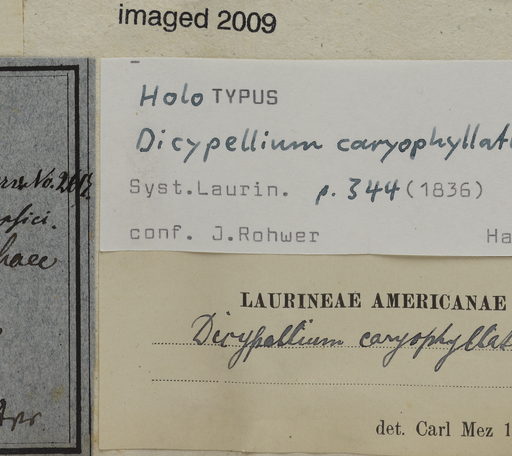 imaged 2009
Holo TYPUS
Dicypellium caryophyllat
Syst.Laurin. p. 344 (1836)
conf. J.Rohwer Ha
LAURINEAE AMERICANAE
Dicypellium caryophyllat
det. Carl Mez 1